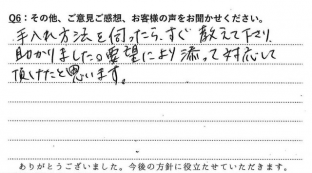 Q6：その他、ご意見ご感想、お客様の声をお聞かせください。
手入れ方法を伺ったら、すぐ教えて下さり
助かりました。要望により添って対応して
頂けたと思います。
ありがとうございました。今後の方針に役立たせていただきます。